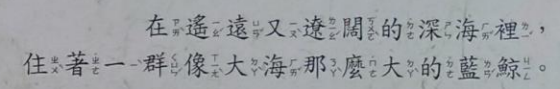 在遙遠又遼闊的深海裡，
住著一群像大海那麼大的藍鯨。